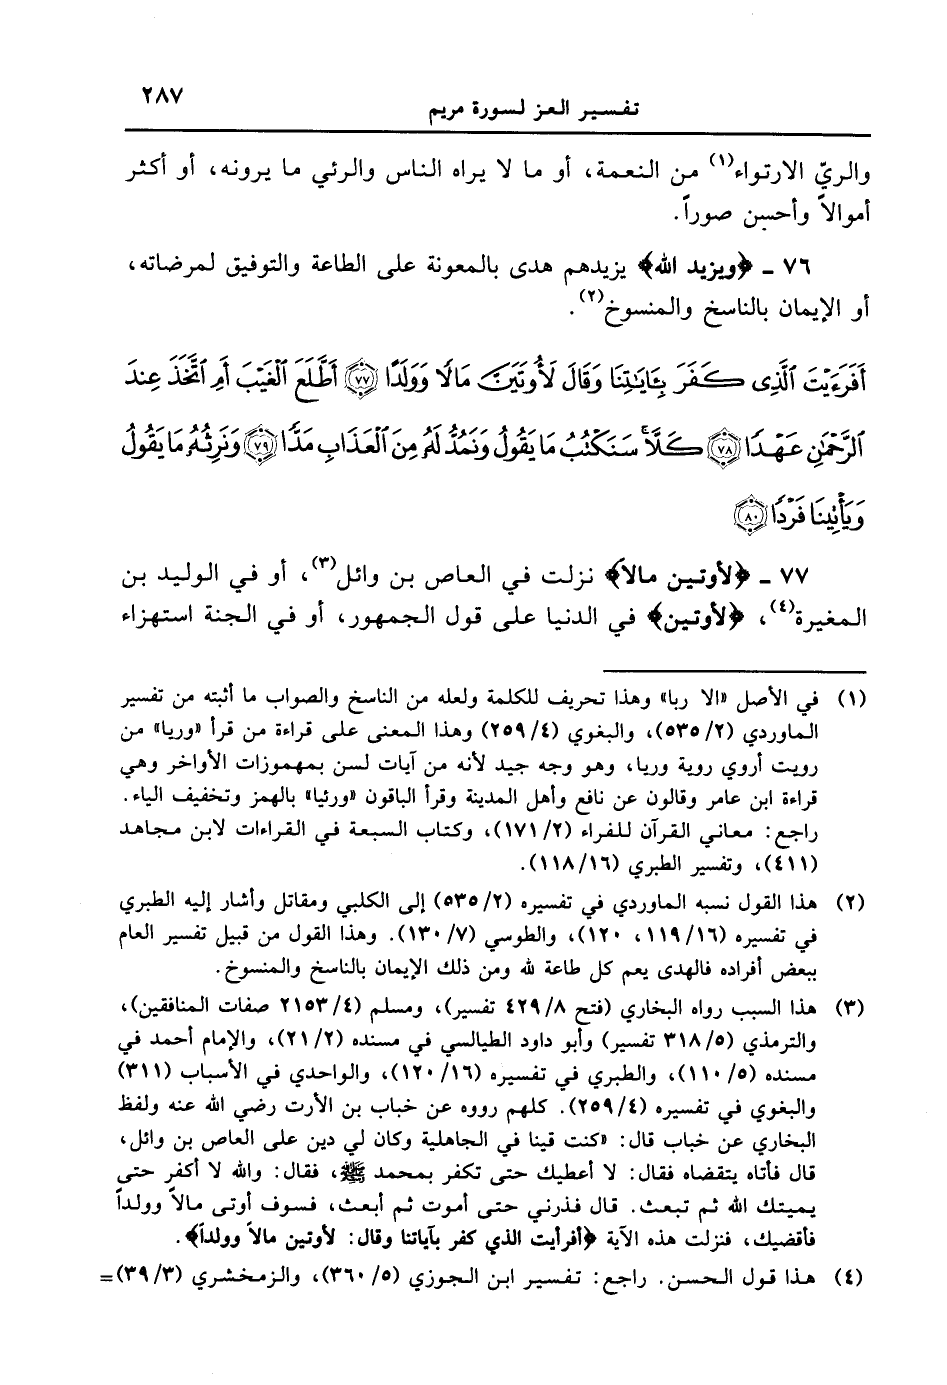 تفسير العز لسورة مريم ٢٨٧
والريّ الارتواء(١) من النعمة، أو ما لا يراه الناس والرئي ما يرونه، أو أكثر
أموالاً وأحسن صوراً.
٧٦ ـ ﴿ويزيد الله﴾ يزيدهم هدى بالمعونة على الطاعة والتوفيق لمرضاته،
أو الإيمان بالناسخ والمنسوخ(٢).
أَفَرَءَيْتَ ٱلَّذِى كَفَرَ بِـَٔايَـٰتِنَا وَقَالَ لَأُوتَيَنَّ مَالًا وَوَلَدًا ﴿٧٧﴾ أَطَّلَعَ ٱلْغَيْبَ أَمِ ٱتَّخَذَ عِندَ
ٱلرَّحْمَـٰنِ عَهْدًا ﴿٧٨﴾ كَلَّا ۚ سَنَكْتُبُ مَا يَقُولُ وَنَمُدُّ لَهُۥ مِنَ ٱلْعَذَابِ مَدًّا ﴿٧٩﴾ وَنَرِثُهُۥ مَا يَقُولُ
وَيَأْتِينَا فَرْدًا ﴿٨٠﴾
٧٧ ـ ﴿لأوتين مالاً﴾ نزلت في العاص بن وائل(٣)، أو في الوليد بن
المغيرة(٤)، ﴿لأوتين﴾ في الدنيا على قول الجمهور، أو في الجنة استهزاء
(١) في الأصل «الا ربا» وهذا تحريف للكلمة ولعله من الناسخ والصواب ما أثبته من تفسير
الماوردي (٥٣٥/٢)، والبغوي (٢٥٩/٤) وهذا المعنى على قراءة من قرأ «وريا» من
رويت أروي روية وريا، وهو وجه جيد لأنه من آيات لسن بمهموزات الأواخر وهي
قراءة ابن عامر وقالون عن نافع وأهل المدينة وقرأ الباقون «ورئيا» بالهمز وتخفيف الياء.
راجع: معاني القرآن للفراء (١٧١/٢)، وكتاب السبعة في القراءات لابن مجاهد
(٤١١)، وتفسير الطبري (١١٨/١٦).
(٢) هذا القول نسبه الماوردي في تفسيره (٥٣٥/٢) إلى الكلبي ومقاتل وأشار إليه الطبري
في تفسيره (١١٩/١٦، ١٢٠)، والطوسي (١٣٠/٧). وهذا القول من قبيل تفسير العام
ببعض أفراده فالهدى يعم كل طاعة لله ومن ذلك الإيمان بالناسخ والمنسوخ.
(٣) هذا السبب رواه البخاري (فتح ٤٢٩/٨ تفسير)، ومسلم (٢١٥٣/٤ صفات المنافقين)،
والترمذي (٣١٨/٥ تفسير) وأبو داود الطيالسي في مسنده (٢١/٢)، والإمام أحمد في
مسنده (١١٠/٥)، والطبري في تفسيره (١٢٠/١٦)، والواحدي في الأسباب (٣١١)
والبغوي في تفسيره (٢٥٩/٤). كلهم رووه عن خباب بن الأرت رضي الله عنه ولفظ
البخاري عن خباب قال: «كنت قينا في الجاهلية وكان لي دين على العاص بن وائل،
قال فأتاه يتقضاه فقال: لا أعطيك حتى تكفر بمحمد ﷺ، فقال: والله لا أكفر حتى
يميتك الله ثم تبعث. قال فذرني حتى أموت ثم أبعث، فسوف أوتى مالاً وولداً
فأقضيك، فنزلت هذه الآية ﴿أفرأيت الذي كفر بآياتنا وقال: لأوتين مالاً وولداً﴾.
(٤) هذا قول الحسن. راجع: تفسير ابن الجوزي (٣٦٠/٥)، والزمخشري (٣٩/٣)=